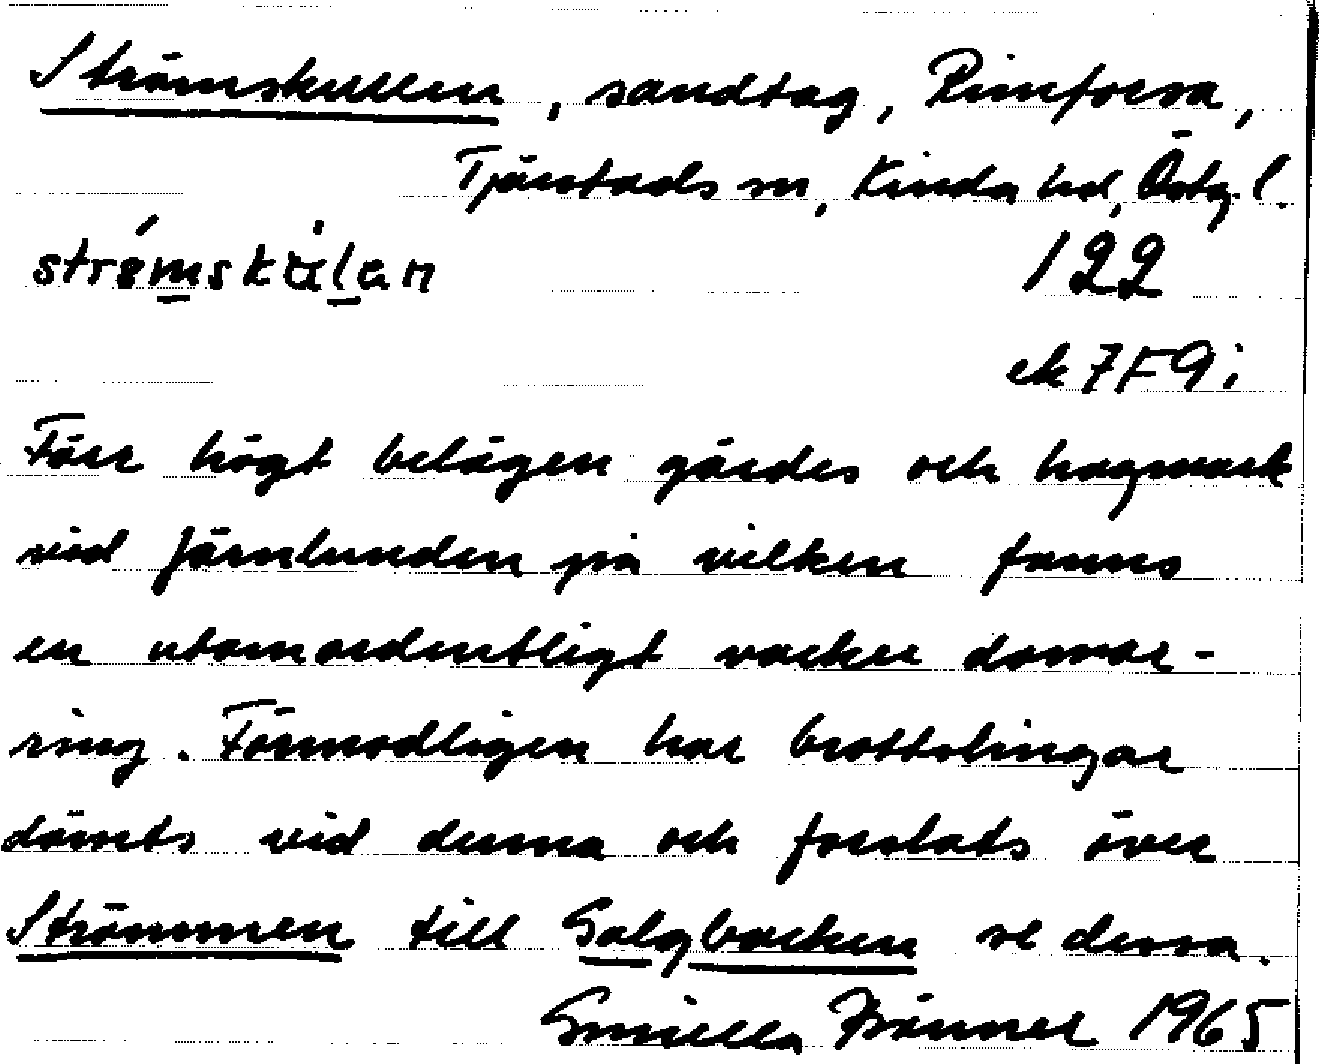 Strömskullen, sandtag, Rimforsa,
Tjärstads sn, Kinda hd, Östg. l.
122
ek 7F9i
Förr högt belägen gärdes och hagmark
vid Järnlunden på vilken fanns
en utomordentligt vacker domar-
ring. Förmodligen har brottslingar
dömts vid denna och forslats över
Strömmen till Galgbacken se dessa.
Gunilla 1965